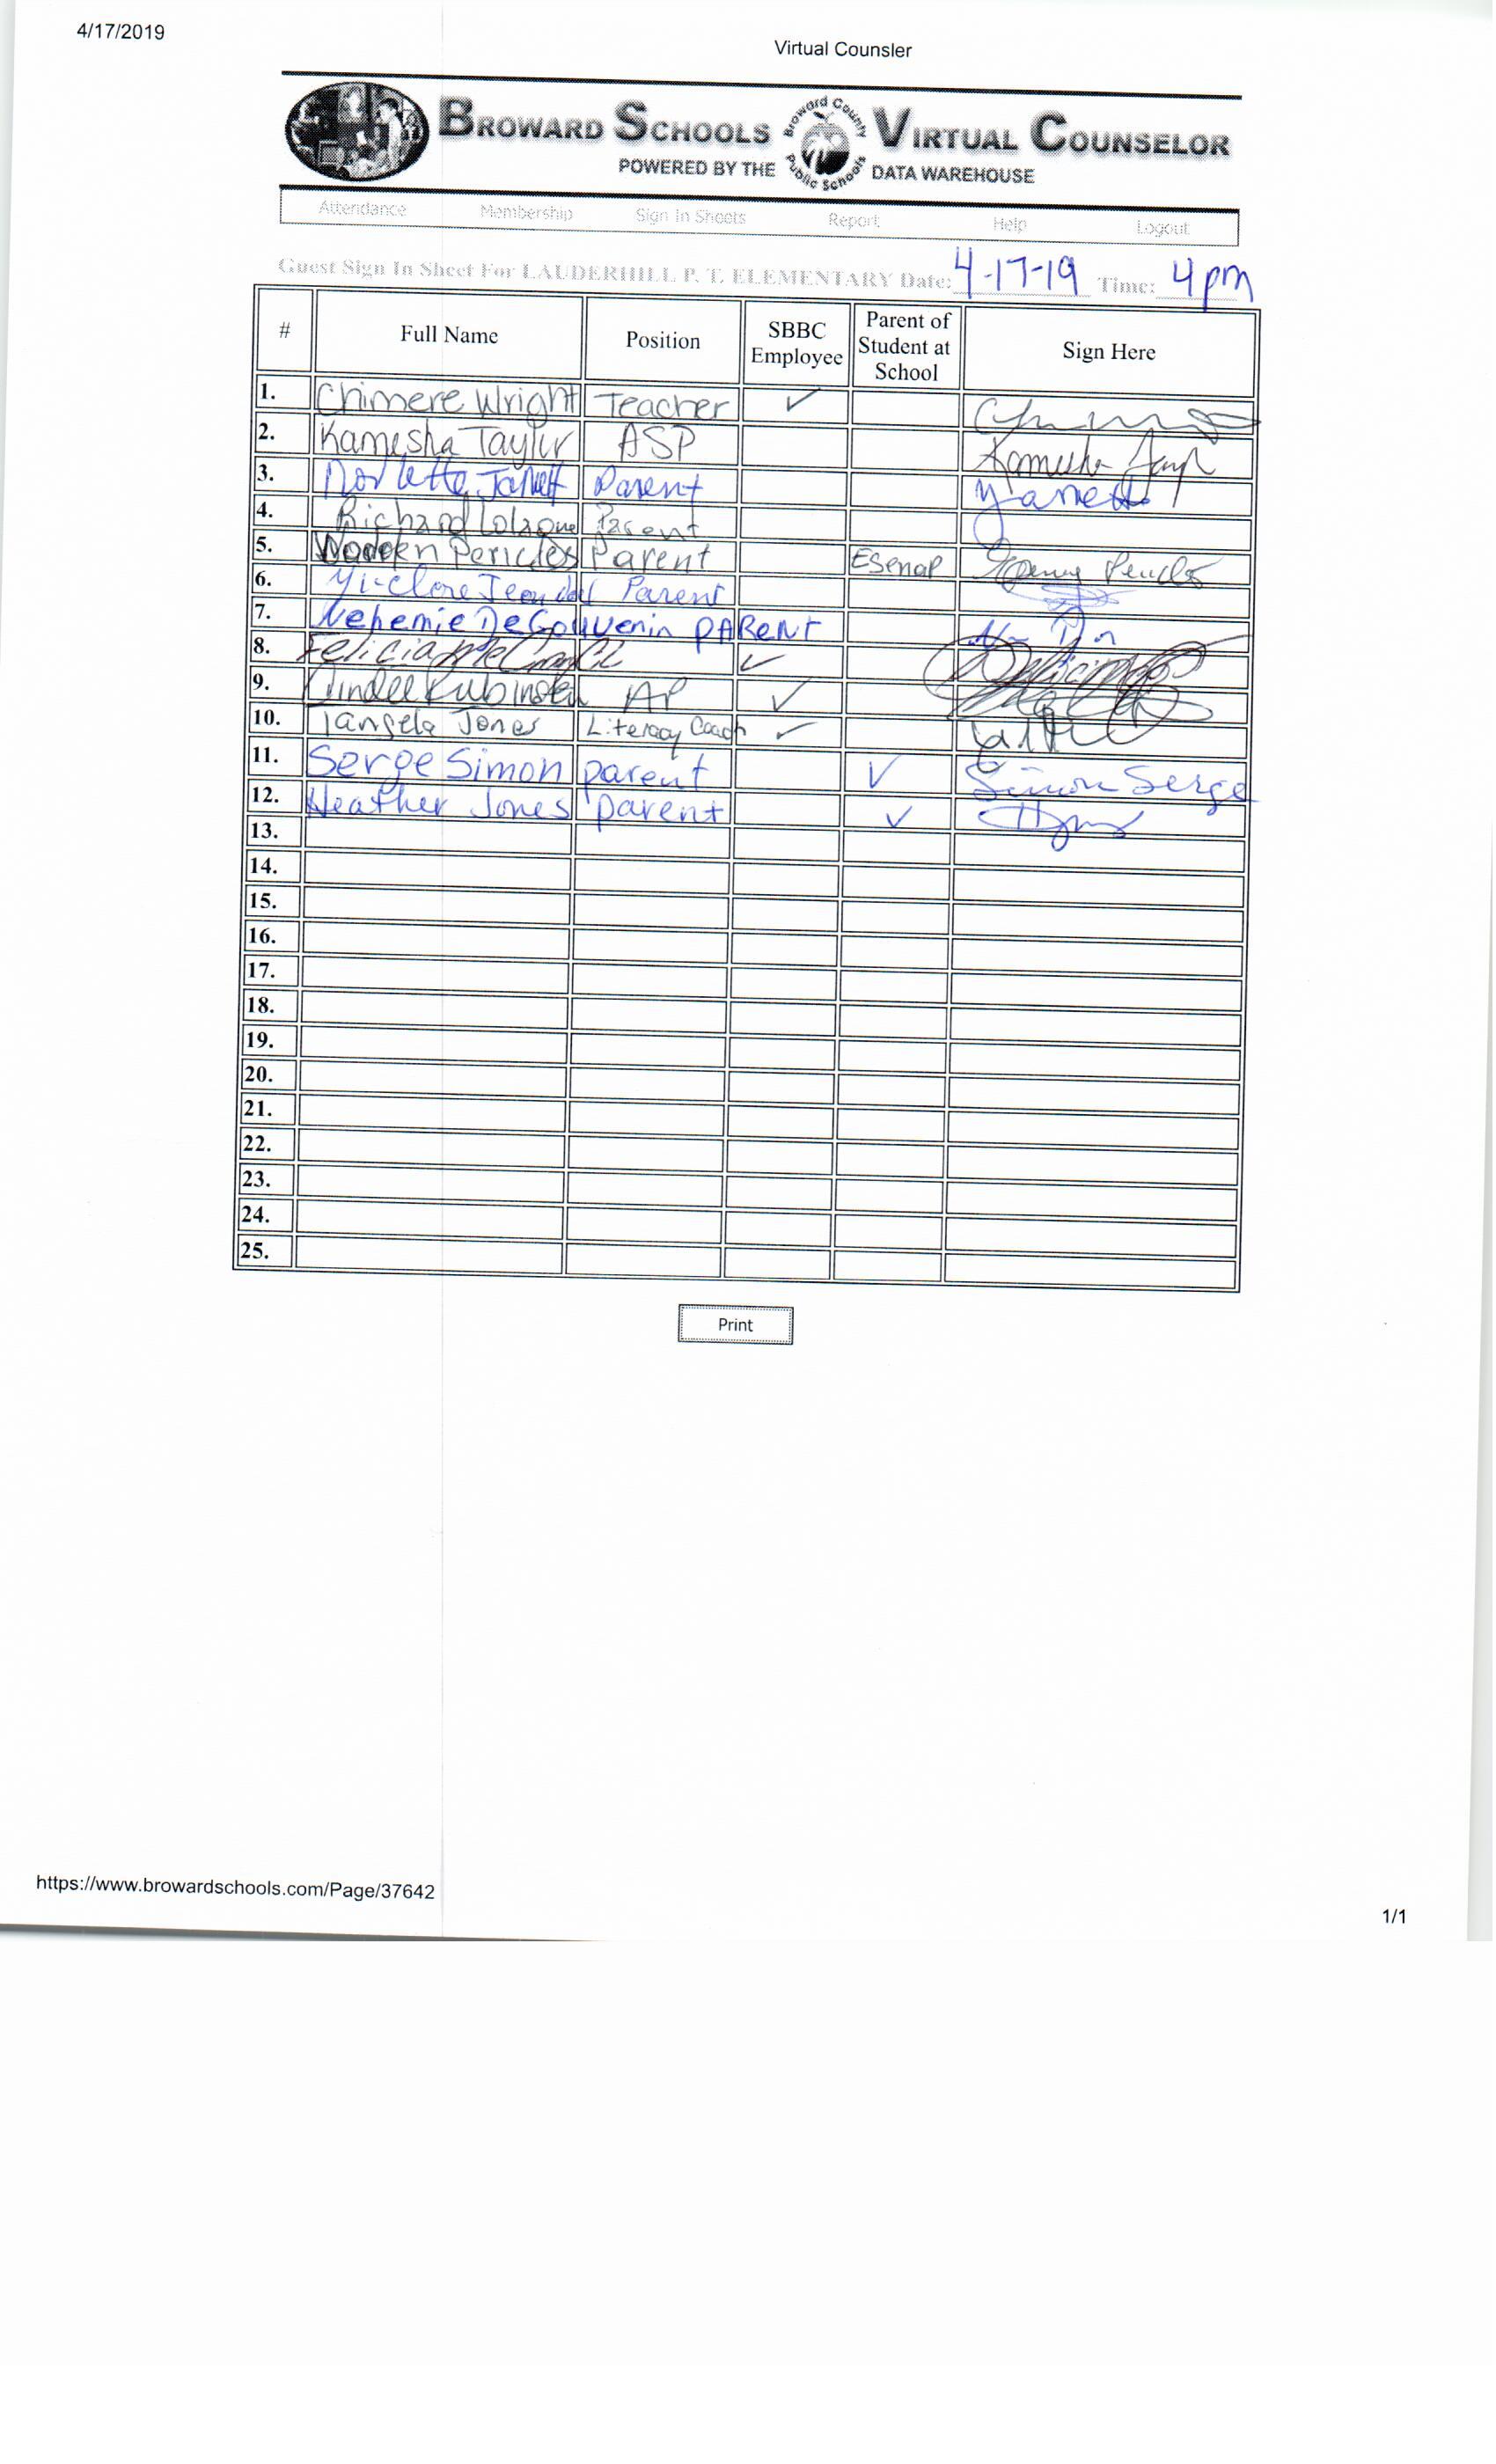 4/17/2019
Virtual Counsler
BROWARD SCHOOLS VIRTUAL COUNSELOR
Broward County Public Schools
POWERED BY THE DATA WAREHOUSE
Attendance Membership Sign In Sheets Report Help Logout
Guest Sign In Sheet For LAUDERHILL P. T. ELEMENTARY Date: 4-17-19 Time: 4pm
# Full Name Position SBBC Employee Parent of Student at School Sign Here
1. Chimere Wright Teacher ✓
2. Kamesha Taylor ASP
3. Parent
4. Richard Parent
5. Pericles Parent Esenap
6. Parent
7. Nehemie DeGouvenin PARENT
8. Felicia ✓
9. Rubinstein AP ✓
10. Tangela Jones Literacy Coach ✓
11. Serge Simon parent ✓ Simon Serge
12. Heather Jones parent ✓
13.
14.
15.
16.
17.
18.
19.
20.
21.
22.
23.
24.
25.
Print
https://www.browardschools.com/Page/37642
1/1